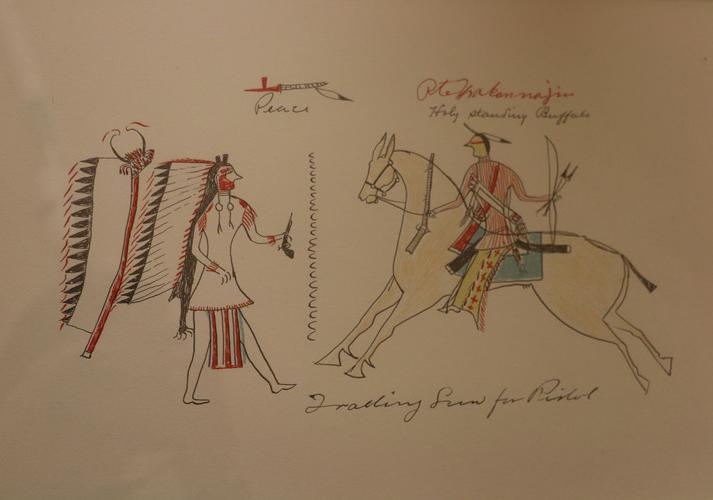 Peace
PteWakannajin
Holy standing Buffalo
Trading Gun for Pistol